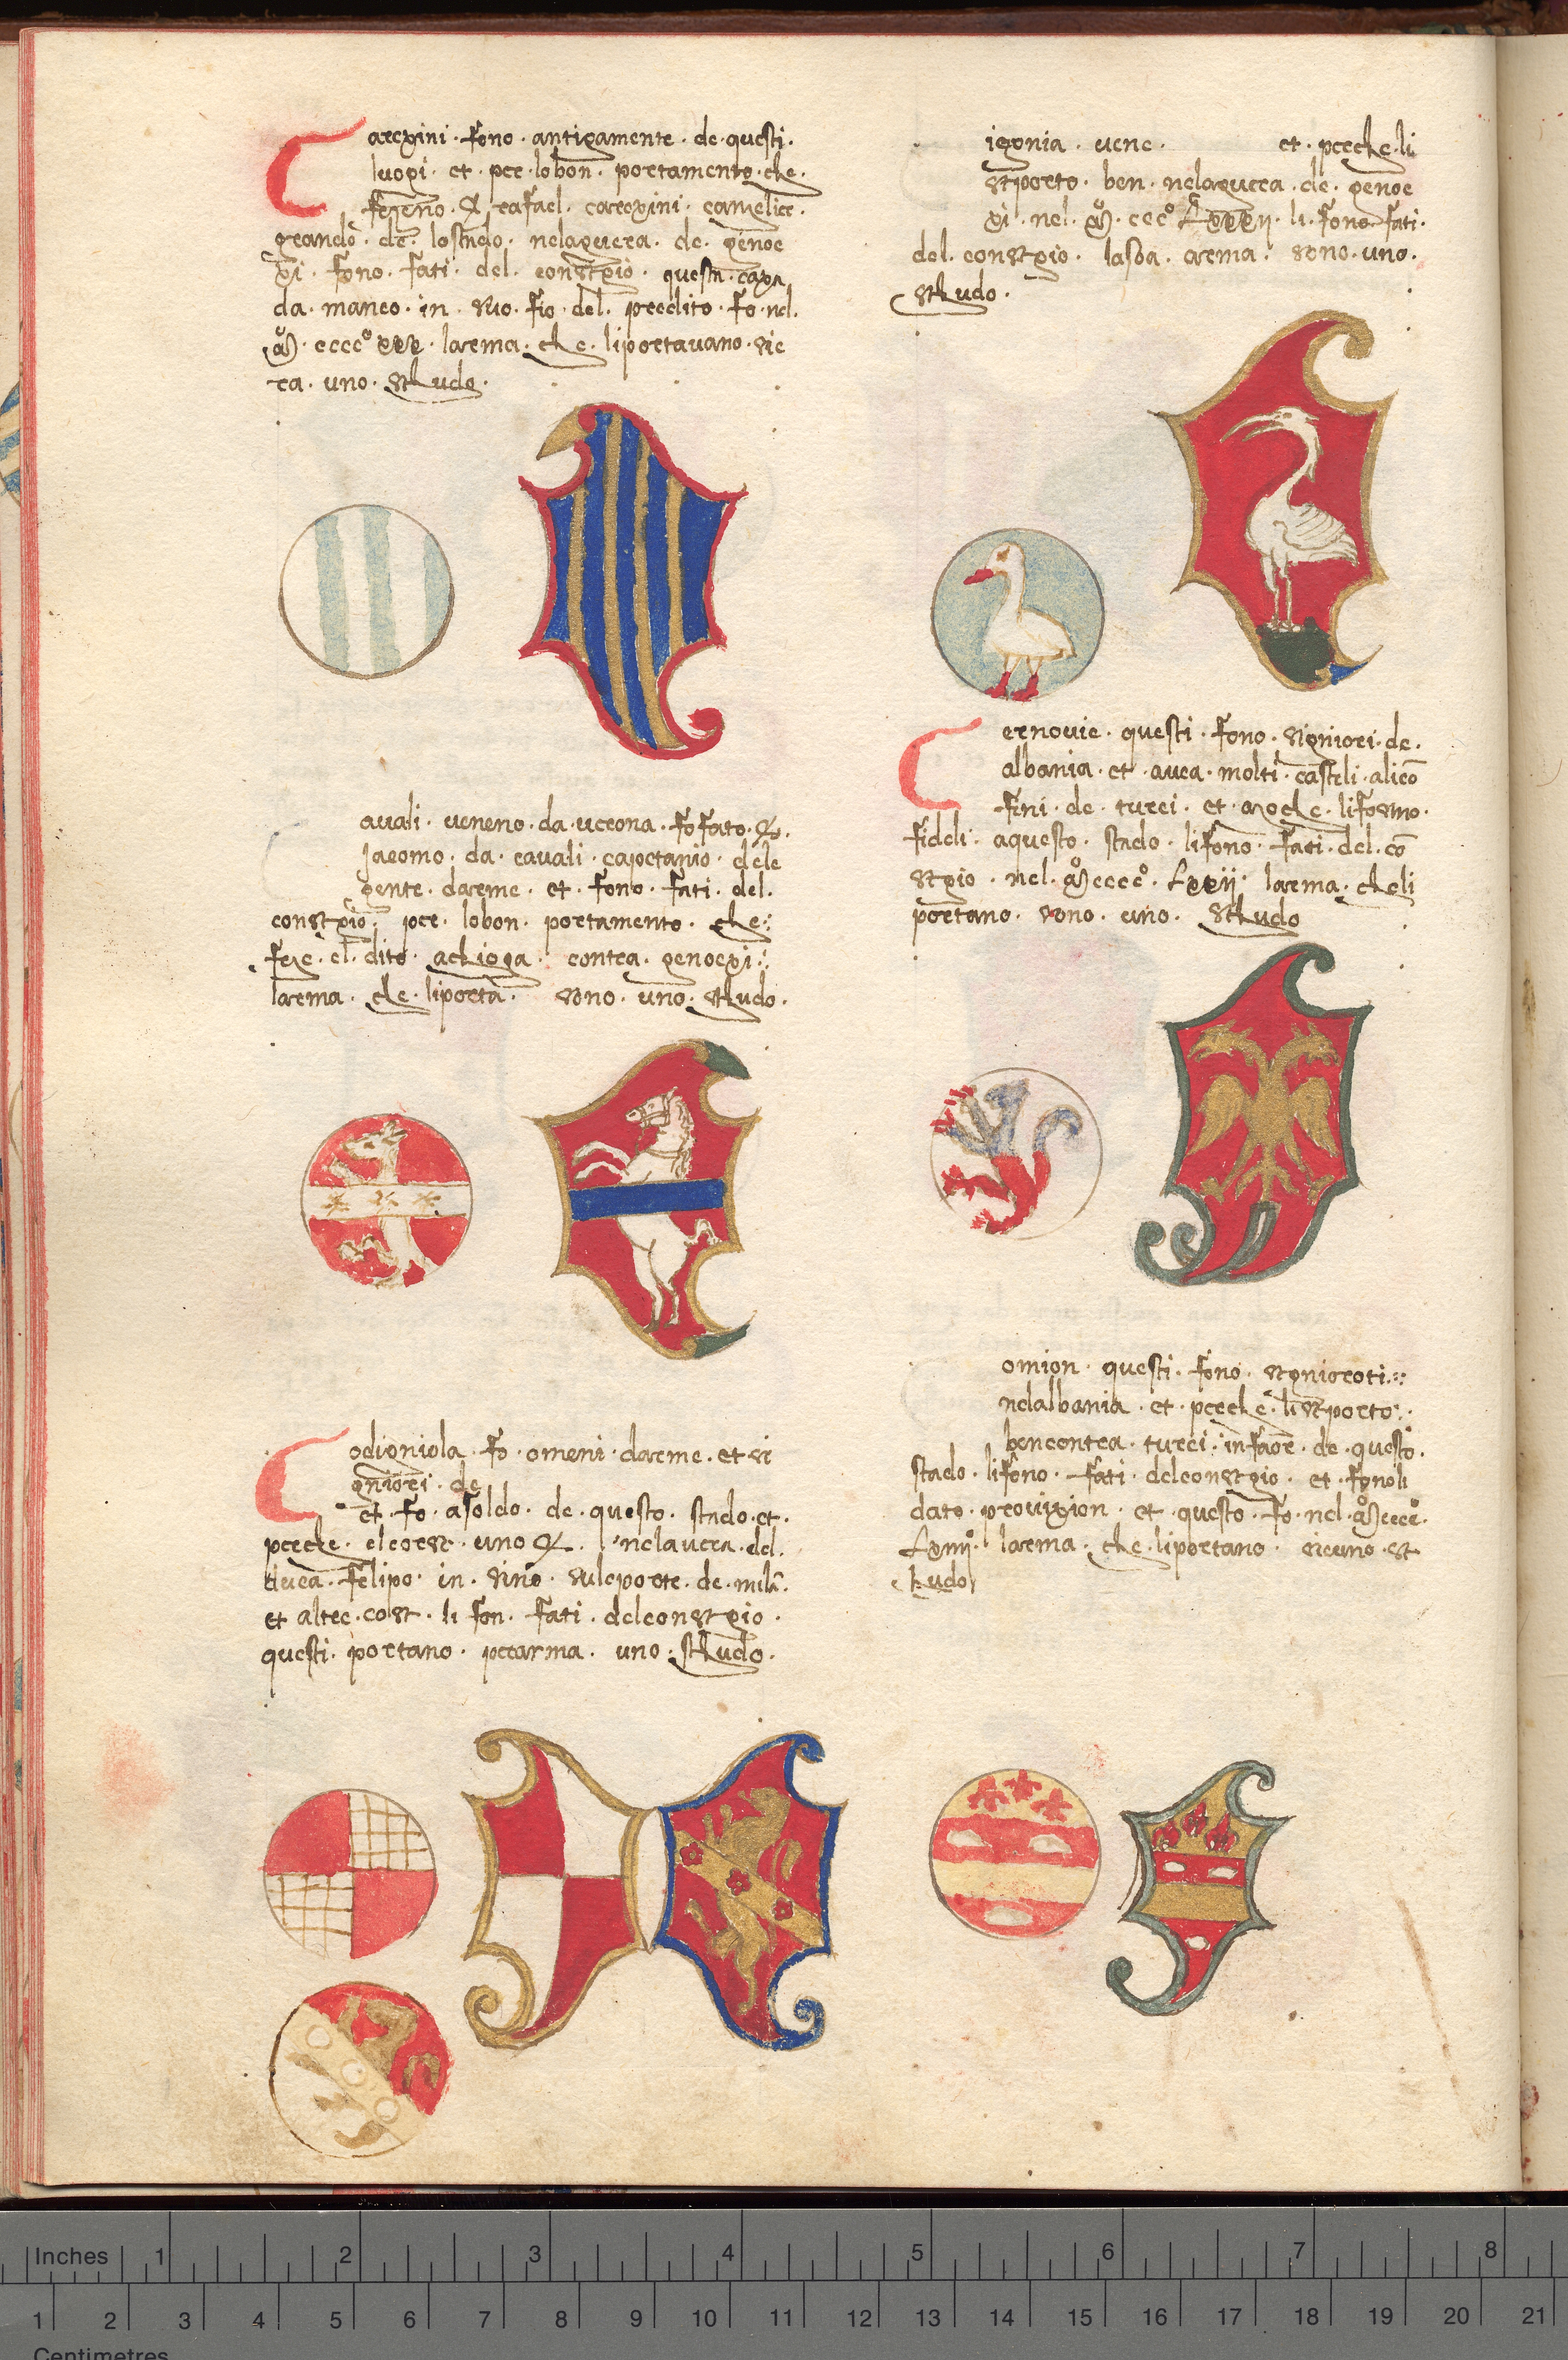 Carexini · fono · antigamente · de · questi ·
luogi · et · per · lobon · portamento · che ·
rafael · carexini · canzelier ·
grando · de · lostado · nelaguera · de · genoe
xi · fono · fati · del · consegio · questa · caxa
da · manco · in · suo · fio · del · predito · fo · nel ·
cccc° xxx · larema · che · liportavano · sie
ra · uno · schudo ·
avali · veneno · da · verona · fo fato ·
Jacomo · da · cavali · capetanio · dele
gente · darme · et · fono · fati · del ·
consegio · per · lobon · portamento · che
feze · el · dito · achioga · contra · genoexi
larma · che · liporta · sono · uno · schudo ·
Codigniola · fo · omeni · darme · et si
gniori · de
et · fo · asoldo · de · questo · stado · et ·
perche · uno · nelavera · del ·
felipo · in · sino · suleporte · de · mila ·
et altre · li fon · fati · delconsegio ·
questi · portano · perarma · uno · schudo ·
igonia · vene · et · perche · li
portò · ben · nelaguera · de · genoe
xi · nel · ccc° Lxxxii · li · fono · fati ·
del · consegio · lasoa · arema · sono · uno ·
schudo ·
Cernovie · questi · fono · signiori · de ·
albania · et · avea · molti · casteli · alico
fini · de · turci · et · lifosemo ·
fideli · aquesto · stado · lifono · fati · del · co
segio · nel · cccc° · Lxxii · larema · cheli
portano · sono · uno · schudo
omion · questi · fono · signioroti
nelalbania · et · perche · li portò
bencontra · turci · infaore · de · questo ·
stado · lifono · fati · delconsegio · et · fonoli
dato · provixion · et · questo · fo · nel · cccc°
larema · che · liportano · sieuno · s
chudo
Inches 1 2 3 4 5 6 7 8
1 2 3 4 5 6 7 8 9 10 11 12 13 14 15 16 17 18 19 20 21
Centimetres